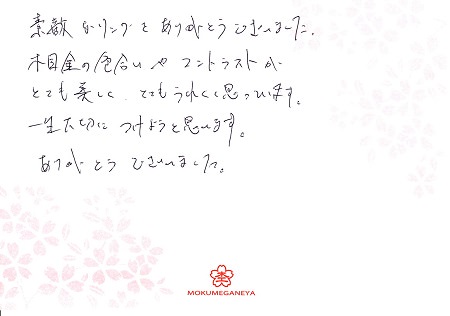 素敵なリングをありがとうございました。
木目金の色合いやコントラストが
とても美しく、とてもうれしく思っています。
一生大切につけようと思います。
ありがとうございました。
MOKUMEGANEYA